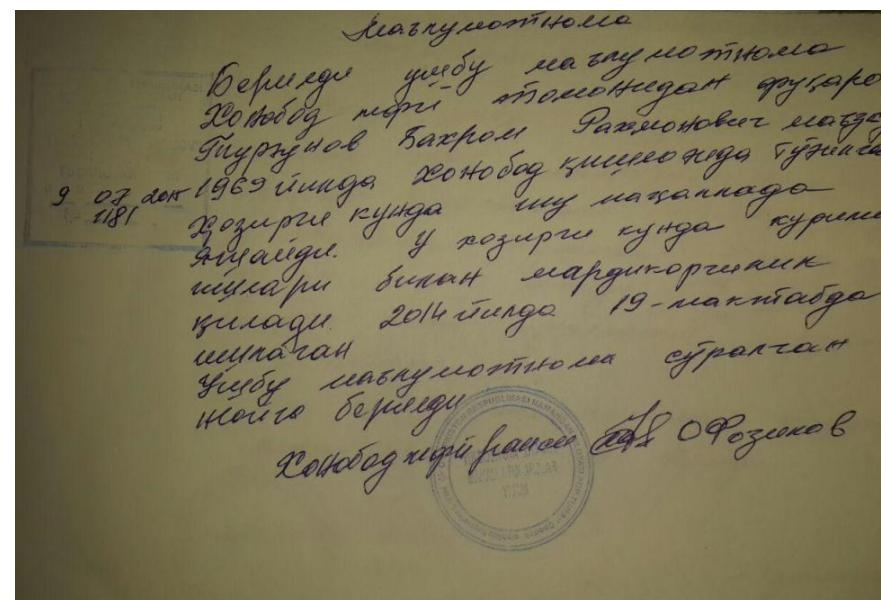 Маълумотнома
Берилди ушбу маълумотнома
Хонобод мфй томонидан фуқаро
Турғунов Бахром Рахмонович мавзу
1969 йилда Хонобод қишлоғида туғилга
9 07 2015
1181
Ҳозирги кунда шу маҳаллада
яшайди. У хозирги кунда курили
ишлари билан мардикорчилик
қилади. 2014 йилда 19-мактабда
ишлаган
Ушбу маълумотнома сўралган
жойга берилди
Хонобод мфй раиси О Фозилов